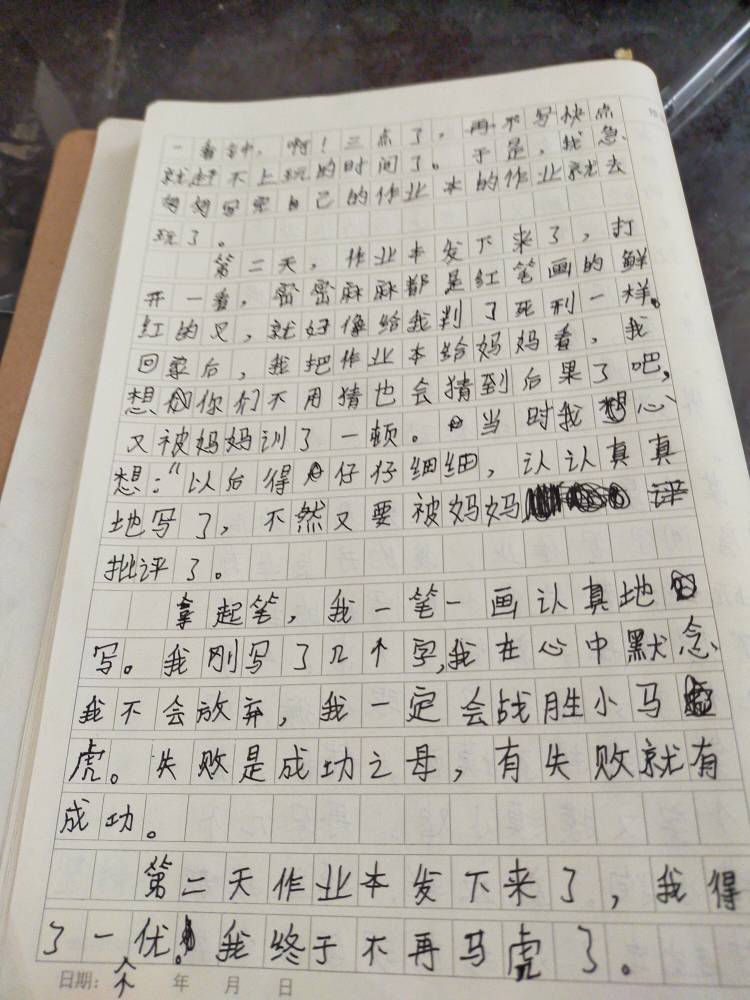 一看钟，啊！三点了，再不写快点
就赶不上玩的时间了。于是，我急
匆匆写完自己的作业本的作业就去
玩了。
第二天，作业本发下来了，打
开一看，密密麻麻都是红笔画的鲜
红的叉，就好像给我判了死刑一样。
回家后，我把作业本给妈妈看，我
想你们不用猜也会猜到后果了吧，
又被妈妈训了一顿。当时我想心
想：“以后得仔仔细细，认认真真
地写了，不然又要被妈妈评
批评了。
拿起笔，我一笔一画认真地
写。我刚写了几个字，我在心中默念
我不会放弃，我一定会战胜小马
虎。失败是成功之母，有失败就有
成功。
第二天作业本发下来了，我得
了一个优。我终于不再马虎了。
日期： 年 月 日